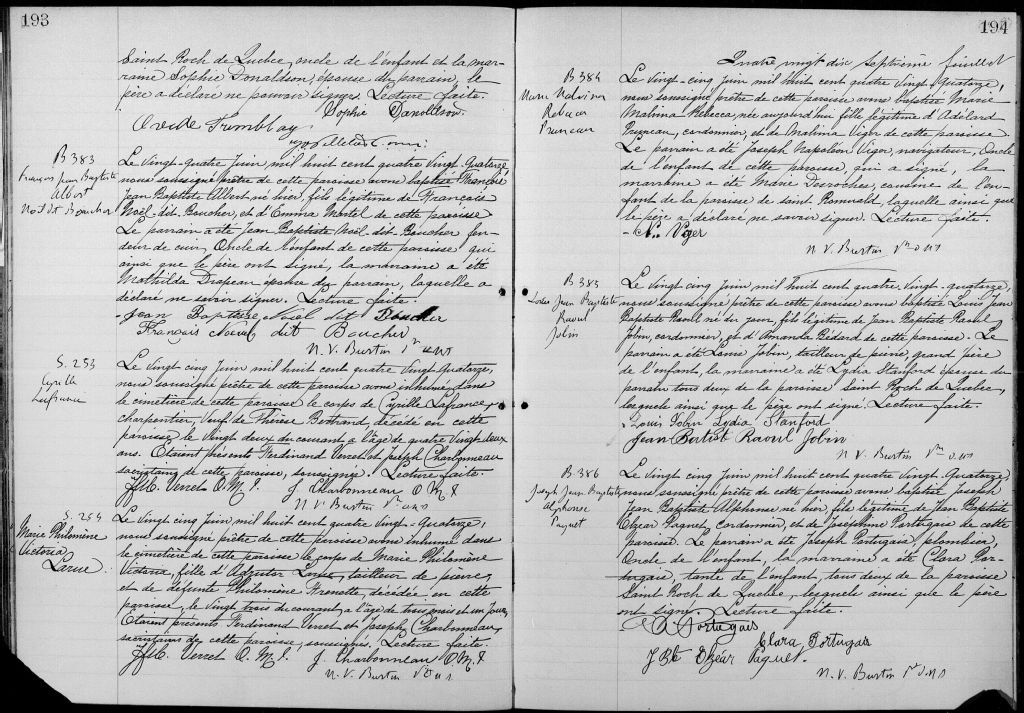 193
Saint Roch de Quebec, oncle de l'enfant et la mar-
raine Sophie Donaldson, épouse du parrain, le
père a déclaré ne pouvoir signer. Lecture faite.
Sophie Danoldson
Ovide Tremblay
B 383
François Jean Baptiste
Albert
Noel dit Boucher
Le Vingt-quatre Juin mil huit cent quatre Vingt-Quatorze,
nous soussigné prêtre de cette paroisse avons baptisé François
Jean Baptiste Albert né hier, fils légitime de François
Noël-dit-Boucher, et d'Emma Martel de cette paroisse
Le parrain a été Jean Baptiste Noël-dit-Boucher
deur de cuir, Oncle de l'enfant de cette paroisse qui
ainsi que le père ont signé, la marraine a été
Mathilda Drapeau épouse du parrain, laquelle a
déclaré ne savoir signer. Lecture faite.
Jean Baptiste Noël dit Boucher
François Noel dit Boucher
N. V. Burtin Ptre O.M.I
S. 253
Cyrille
Lafrance
Le Vingt cinq Juin mil huit cent quatre Vingt Quatorze,
nous soussigné prêtre de cette paroisse avons inhumé dans
le cimetière de cette paroisse le corps de Cyrille Lafrance,
charpentier, Veuf de Thérèse Bertrand, décédé en cette
paroisse le Vingt deux du courant a l'âge de quatre Vingt deux
ans. Etaient présents Ferdinand Verret et Joseph Charbonneau
sacristains de cette paroisse, soussignés. Lecture faite.
Verret O.M.I. J. Charbonneau O M I
N V Burtin Ptre O M I
S. 254
Marie Philomène
Victoria
Larue
Le Vingt cinq Juin mil huit cent quatre Vingt-Quatorze,
nous soussigné prêtre de cette paroisse avons inhumé dans
le cimetière de cette paroisse le corps de Marie Philomène
Victoria, fille d'Adjutor Larue, tailleur de pierre,
et de défunte Philomène Frenette, décédée en cette
paroisse, le Vingt trois du courant, a l'âge de trois mois et un jour,
Etaient présents Ferdinand Verret et Joseph Charbonneau,
sacristains de cette paroisse, soussignés. Lecture faite.
Verret O. M. I. J. Charbonneau O M I
N. V. Burtin Ptre O M I
194
Quatre vingt dix septième feuillet
B 384
Marie Malvina
Rebecca
Le Vingt-cinq Juin mil huit cent quatre Vingt Quatorze,
nous soussigné prêtre de cette paroisse avons baptisé Marie
Malvina Rebecca, née aujourd'hui fille légitime d'Adélard
cordonnier, et de Malvina Viger de cette paroisse
Le parrain a été Joseph Napoléon Viger, navigateur, Oncle
de l'enfant de cette paroisse, qui a signé, la
marraine a été Marie Desroches, cousine de l'en-
fant de la paroisse de Saint Romuald, laquelle ainsi que
le père a déclaré ne savoir signer. Lecture faite.
N. Viger
N. V. Burtin Ptre O M I
B 385
Louis Jean Baptiste
Raoul
Jobin
Le Vingt cinq Juin mil huit cent quatre Vingt-quatorze,
nous soussigné prêtre de cette paroisse avons baptisé Louis Jean
Baptiste Raoul né du jour, fils légitime de Jean Baptiste Raoul
Jobin, cordonnier, et d'Amanda Bédard de cette paroisse. Le
parrain a été Louis Jobin, grand père
de l'enfant, la marraine a été Lydia Stanford épouse du
parrain tous deux de la paroisse Saint Roch de Quebec,
lesquels ainsi que le père ont signé. Lecture faite.
Louis Jobin Lydia Stanford
Jean Batist Raoul Jobin
N V. Burtin Ptre O.M.I
B. 386
Joseph Jean Baptiste
Alphonse
Paquet
Le Vingt cinq Juin mil huit cent quatre Vingt Quatorze,
nous soussigné prêtre de cette paroisse avons baptisé Joseph
Jean Baptiste Alphonse né hier, fils légitime de Jean Baptiste
Elzéar Paquet, cordonnier, et de Josephine Portugais de cette
paroisse. Le parrain a été Joseph Portugais plombier,
Oncle de l'enfant, la marraine a été Clara Por-
tugais, tante de l'enfant, tous deux de la paroisse
Saint Roch de Quebec, lesquels ainsi que le père
ont signé. Lecture faite.
Portugais
Clara Portugais
J Bte Elzéar Paquet.
N. V. Burtin Ptre O.M.I